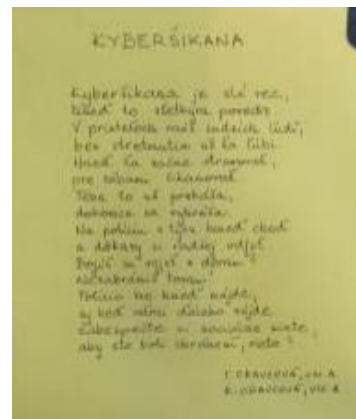 KYBERŠIKANA
Kyberšikana je zlá vec,
hneď to všetkým povedz.
V priateľoch máš ľudí,
bez stretnutia už ťa ľúbi.
Hneď ťa začne
pre zábavu šikanovať
Teba to už
dokonca sa
Na políciu s tým hneď choď
a dôkazy si radšej odfoť
Bojíš sa vyjsť z domu?
Nezabráníš tomu.
Polícia ho hneď nájde,
aj keď niekam ďaleko zájde
Zabezpečte si sociálne siete,
aby ste boli chránení, viete?
T. ORAVCOVÁ, VIII. A
K. ORAVCOVÁ, VIII. A